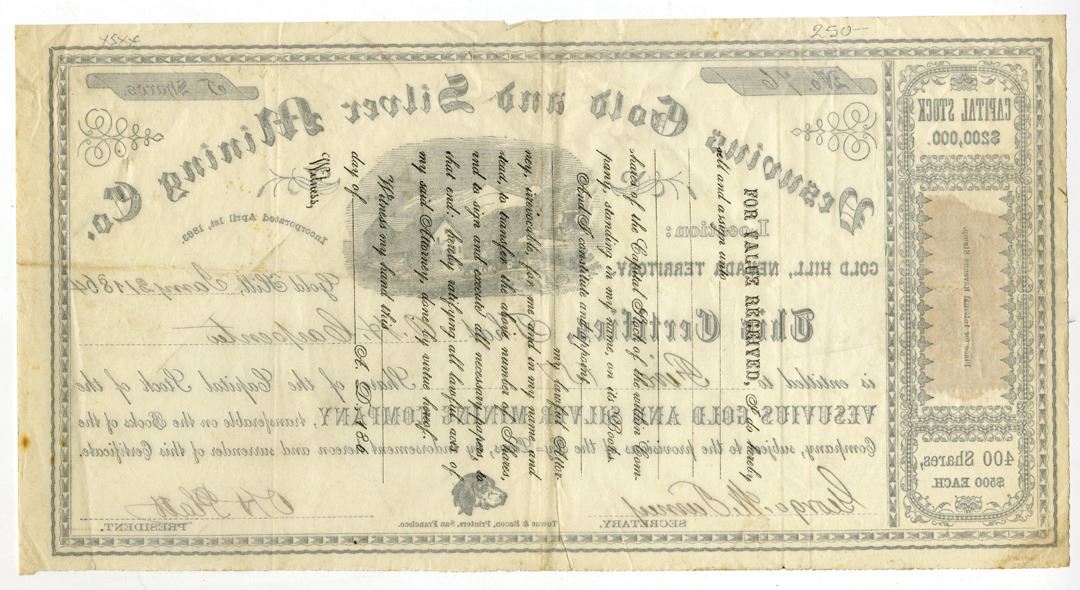 250-
xsxx
CAPITAL STOCK
$200,000.
400 Shares,
$500 EACH.
No. 76
5 Shares.
Vesuvius Gold and Silver Mining Co.
Location:
GOLD HILL, NEVADA TERRITORY.
Incorporated April 1st, 1863.
Gold Hill, Jany 21 1864
This Certifies,
Carpenter
is entitled to Five Shares of the Capital Stock of the
VESUVIUS GOLD AND SILVER MINING COMPANY, transferable on the Books of the
Company, subject to the provisions of the by endorsement hereon and surrender of this Certificate.
George
SECRETARY.
Towne & Bacon, Printers, San Francisco.
PRESIDENT.
FOR VALUE RECEIVED, I do hereby
sell and assign unto
shares of the Capital Stock of the within Com-
pany, standing in my name, on its Books.
And I constitute and appoint,
my lawful Attor-
ney, irrevocable, for me and in my name and
stead, to transfer the above number of Shares,
and to sign and execute all necessary papers, to
that end; hereby ratifying all lawful acts of
my said Attorney, done by virtue hereof.
Witness my hand this
day of A. D. 186
Witness,